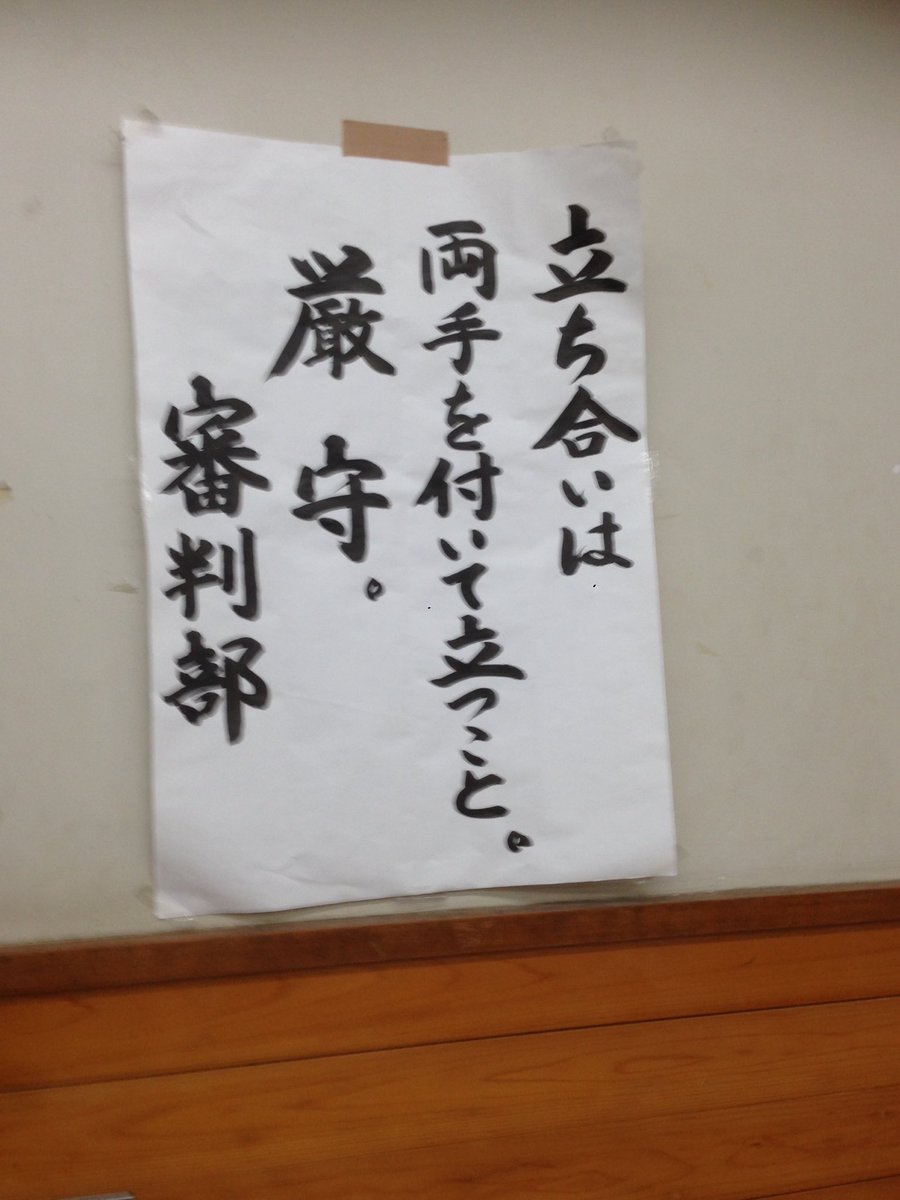 立ち合いは
両手を付いて立つこと。
厳守。
審判部